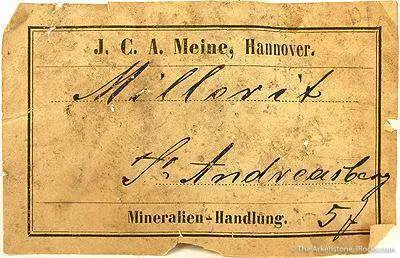 J. C. A. Meine, Hannover.
Millorit
St Andreasberg
5
Mineralien-Handlung.
© The Arkenstone, iRocks.com